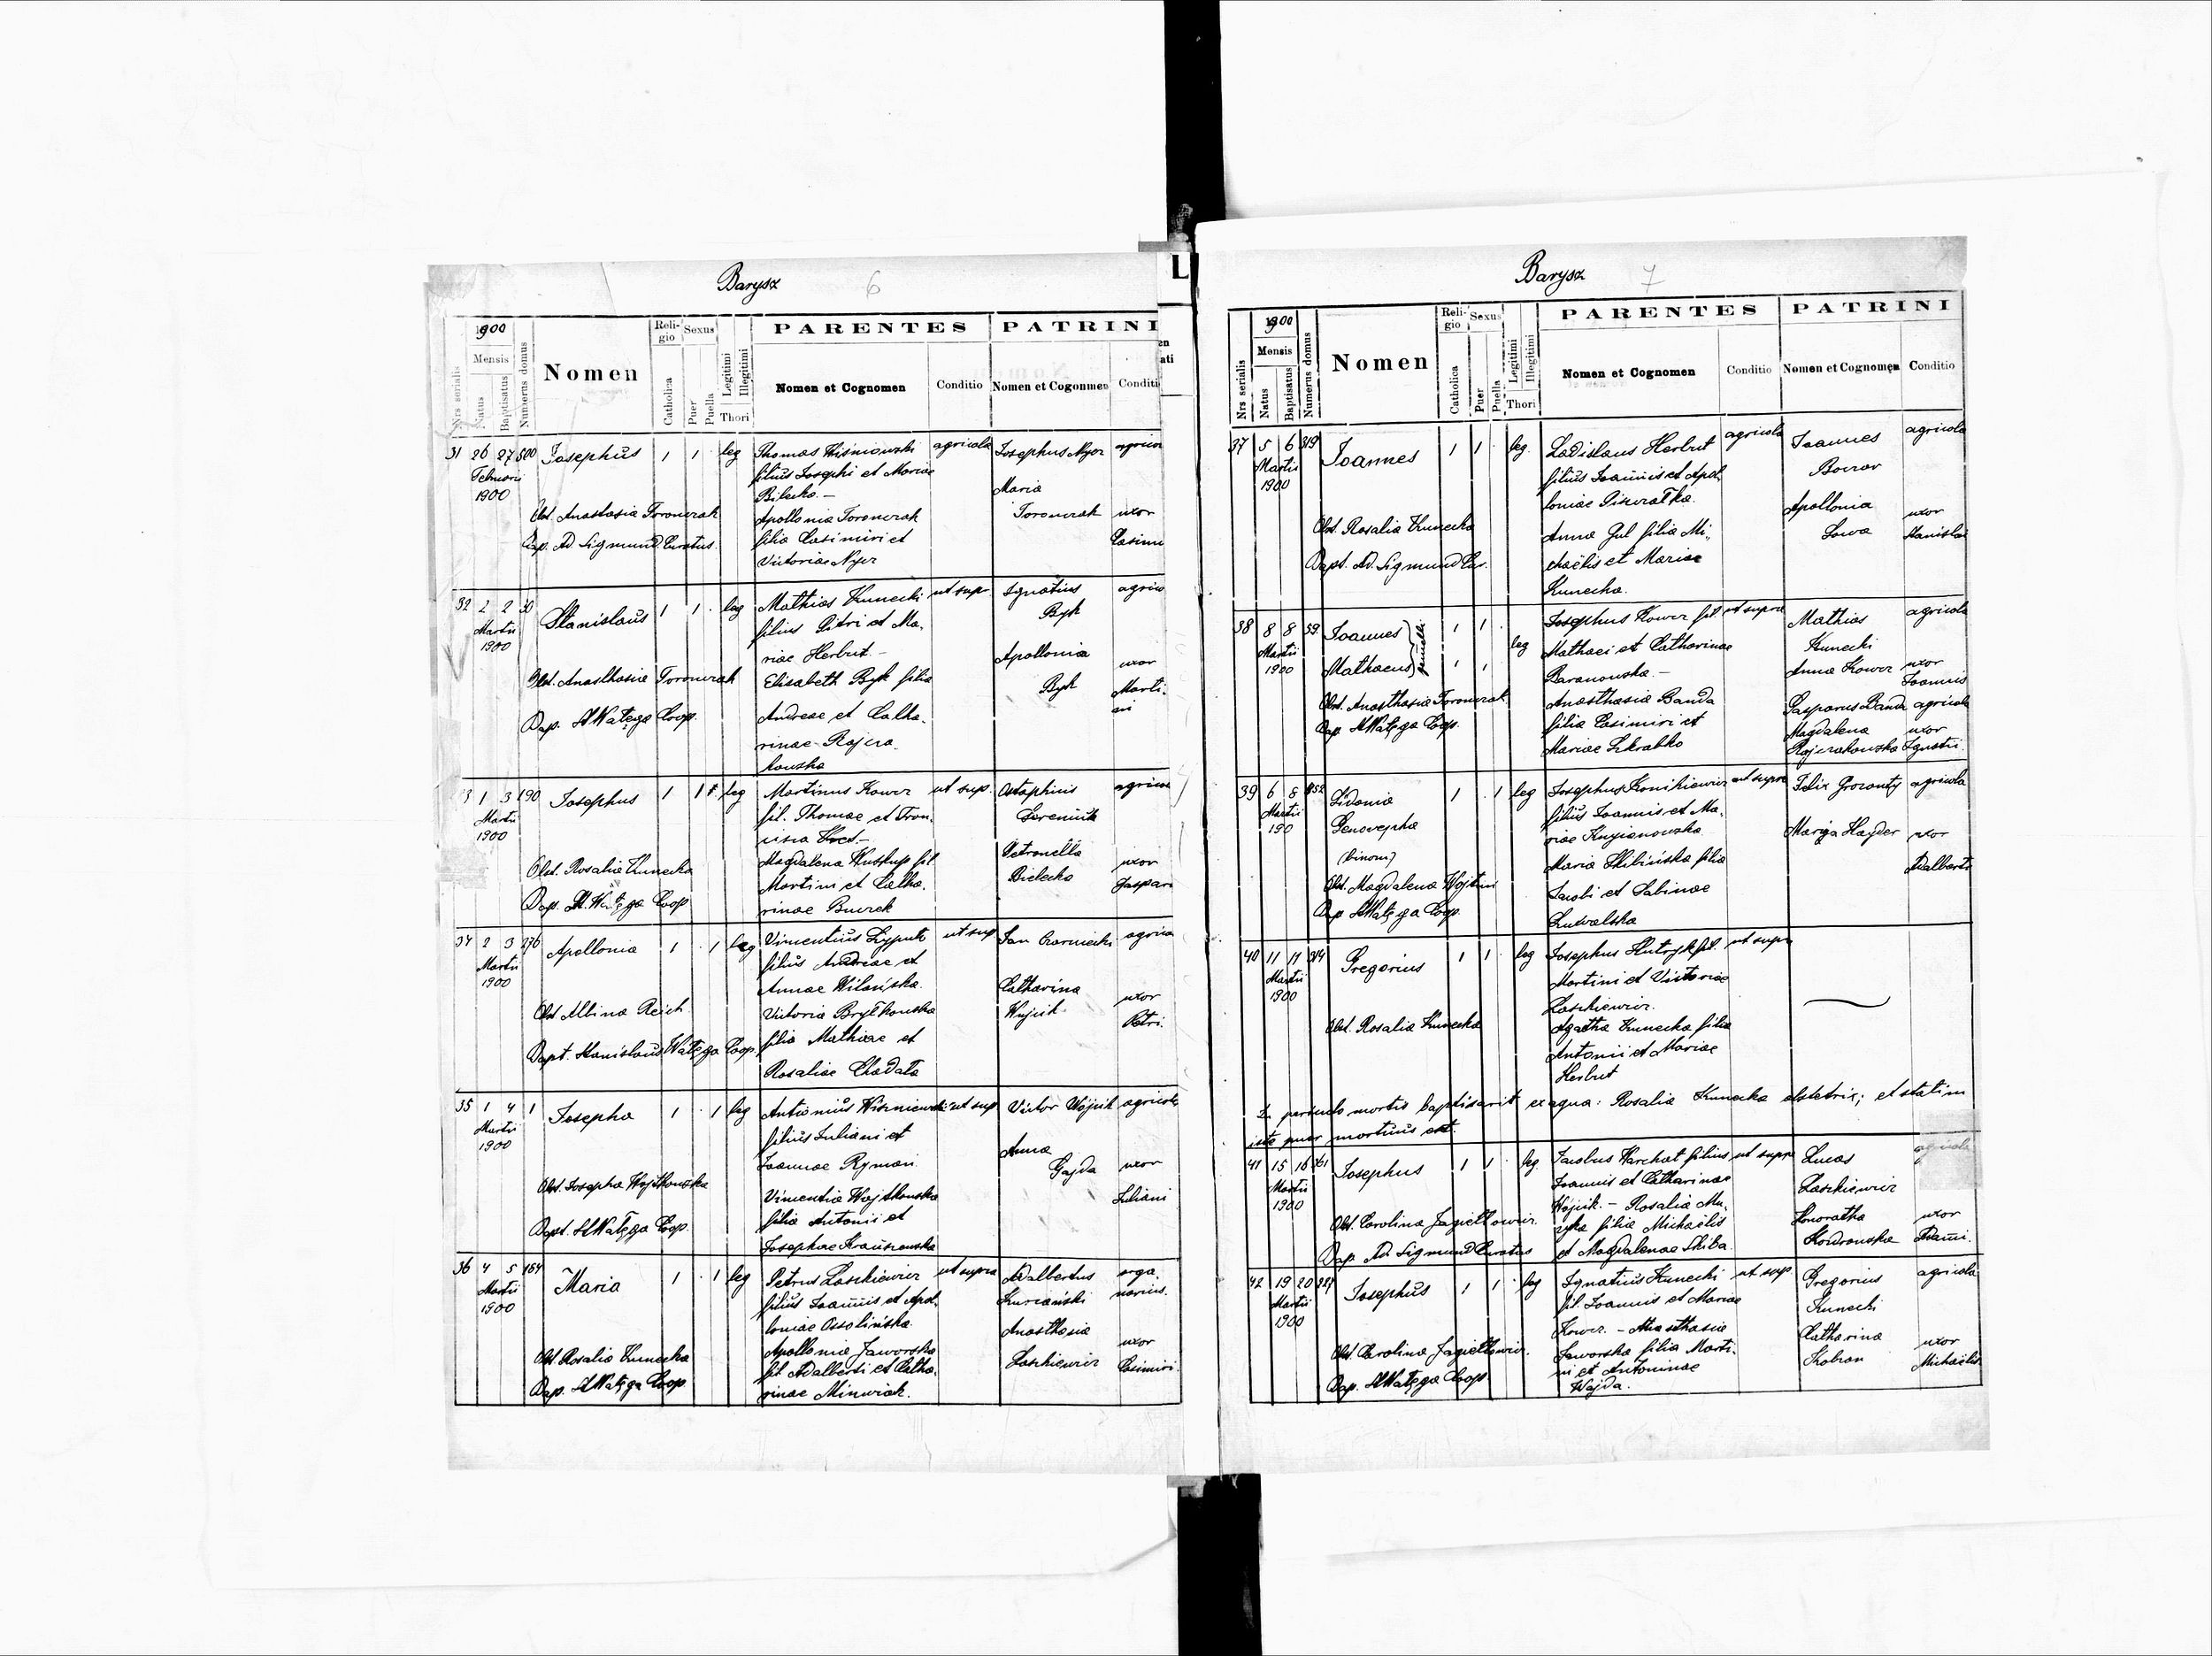 Barysz 6
1900
Reli-
gio
Sexus
PARENTES
PATRINI
Mensis
Nrs serialis
Natus
Baptisatus
Numerus domus
Nomen
Catholica
Puer
Puella
Legitimi
Illegitimi
Thori
Nomen et Cognomen
Conditio
Nomen et Cogonmen
Conditi
31 26 27 500 Josephus 1 1 leg Thomas Wiśniowski agricola Josephus Nyer
Februarii filius Josephi et Mariae
1900 Maria
Bilecka.-
Obst. Anastasia Toronczak Apollonia Toronczak Toronczak uxor
Bap. Ad. Sigmund Curatus. filia Casimiri et Casimi
Victoriae Nyer
32 2 2 50 Stanislaus 1 1 leg Mathias Kunecki ut sup Ignatius agrico
Martii filius Petri et Ma- Byk
1900 riae Herbut.- Apollonia uxor
Obst. Anasthasia Toronczak Elisabeth Byk filia Byk Marti-
Bap. St Watęga Coop. Andreae et Catha- ni
rinae Rajcza-
kowska
1 3 190 Josephus 1 1 leg Martinus Kowcz ut sup. Ostaphius
Martii fil. Thomae et Fran-
1900
Obst. Rosalia Kunecka Petronella uxor
Bap. St. Watęga Coop Martini et Catha- Bielecka Gaspari
rinae Burek
34 2 3 276 Apollonia 1 1 leg Vincentius ut sup Jan Czarniecki
Martii filius Andreae et
1900 Annae Wilańska. Catharina uxor
Obst Albina Reich Victoria Brylkowska Wujcik Petri.
Bapt. Stanislaus Watęga Coop. filia Mathiae et
Rosaliae Chadala
35 1 4 1 Josepha 1 1 leg Antonius Wiszniewski ut sup Victor Wójcik agricola
Martii filius Juliani et
1900 Joannae Ryman Anna
Obst. Josepha Wojtkowska Vincentia Wojtkowska Gajda uxor
Bapt. St Watęga Coop. filia Antonii et Juliani
Josephae Krauszowska
36 4 5 164 Maria 1 1 leg Petrus Laszkiewicz ut supra Adalbertus orga-
Martii filius Joannis et Apol- narius.
1900 loniae Ossolińska. Anasthasia
Apollonia Jaworska uxor
Obst. Rosalia Kunecka fil Adalberti et Catha- Laszkiewicz Casimiri.
Bap. St Watęga Coop. rinae Minwiak.
Barysz 7
1900
Reli-
gio
Sexus
PARENTES
PATRINI
Mensis
Nrs serialis
Natus
Baptisatus
Numerus domus
Nomen
Catholica
Puer
Puella
Legitimi
Illegitimi
Thori
Nomen et Cognomen
Conditio
Nomen et Cognomen
Conditio
37 5 6 319 Joannes 1 1 leg. Ladislaus Herbut agricola Joannes agricola
Martii filius Joannis et Apol-
1900 loniae Apollonia uxor
Obst. Rosalia Kunecka Anna Gul filia Mi- Sowa Stanislai
Bapt. Ad. Sigmund Cur. chaëlis et Mariae
Kunecka.
38 8 8 59 Joannes gemelli 1 1 leg Josephus Kowcz fil. ut supra Mathias agricola
Martii Mathaei et Catharinae Kunecki
1900 Mathaeus 1 1 Baranowska.- Anna Kowcz uxor Joannis
Obst. Anasthasia Toronczak Anasthasia Banda Gasparus Banda agricola
Bap St Watęga Coop. filia Casimiri et Magdalena uxor
Mariae Szkrabko Rajczakowska Ignatii.
39 6 8 Sidonia 1 1 leg Josephus Konikiewicz ut supra Felix agricola
Martii Genovepha filius Joannis et Ma-
190 riae Kuyianowska Marya Hayder uxor
(binom) Maria Skibińska filia Adalberti
Obst. Magdalena Jacobi et Sabinae
Bap St Watęga Coop.
40 11 11 314 Gregorius 1 1 leg Josephus fil. ut supra
Martii Martini et Victoriae
1900 Laszkiewicz.
Obst. Rosalia Kunecka Agatha Kunecka filia
Antonii et Mariae
Herbut
In periculo mortis baptisavit ex aqua: Rosalia Kunecka obstetrix; et statim
iste puer mortuus est.
41 15 16 161 Josephus 1 1 leg. Jacobus Warchat filius ut supra Lucas agricola
Martii Joannis et Catharinae Laszkiewicz
1900 Wójcik. - Rosalia Mu- Honoratha uxor
Obst. Carolina Jagiełłowicz. zyka filia Michaëlis Adami.
Bap. Ad. Sigmund Curatus et Magdalenae Skiba.
42 19 20 Josephus 1 1 leg Ignatius Kunecki ut sup Gregorius agricola
Martii fil. Joannis et Mariae Kunecki
1900 Kowcz. - Anasthasia Catharina uxor
Obst. Carolina Jagiełłowicz. Jaworska filia Marti- Skobran Michaelis
Bap. St Watęga Coop. ni et Antoninae
Wajda.